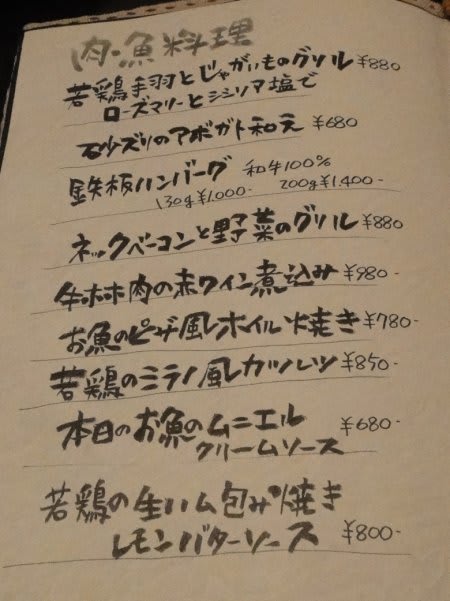 肉・魚料理
若鶏手羽とじゃがいものグリル ¥880
ローズマリーとシシリア塩で
砂ズリのアボガド和え ¥680
鉄板ハンバーグ 和牛100%
130g¥1,000- 200g¥1,400-
ネックベーコンと野菜のグリル ¥880
牛ホホ肉の赤ワイン煮込み ¥980-
お魚のピザ風ホイル焼き ¥780-
若鶏のミラノ風カツレツ ¥850-
本日のお魚のムニエル ¥680-
クリームソース
若鶏の生ハム包み焼き
レモンバターソース ¥800-